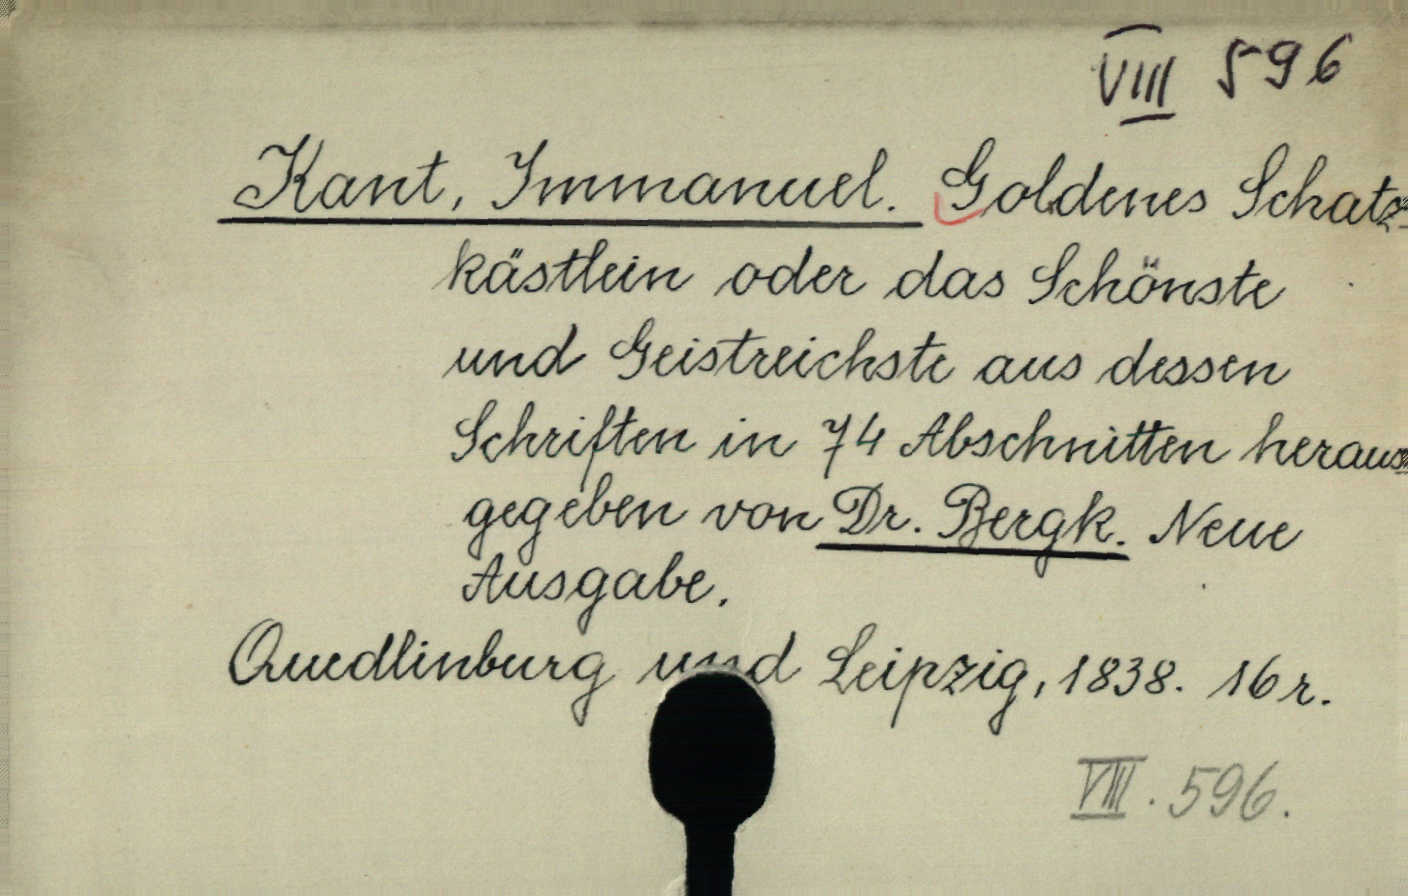 VIII 596
Kant, Immanuel. Goldenes Schatz-
kästlein oder das Schönste
und Geistreichste aus dessen
Schriften in 74 Abschnitten heraus-
gegeben von Dr. Bergk. Neue
Ausgabe.
Quedlinburg und Leipzig, 1838. 16 r.
VIII. 596.